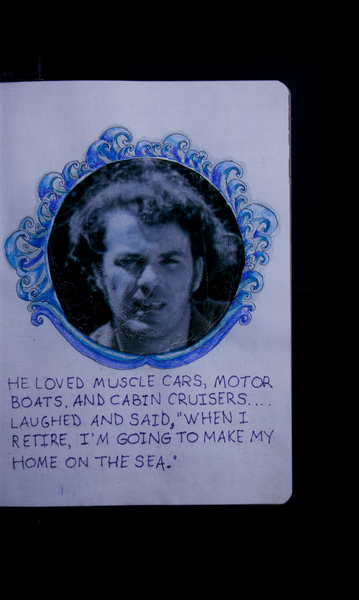 HE LOVED MUSCLE CARS, MOTOR
BOATS, AND CABIN CRUISERS....
LAUGHED AND SAID, "WHEN I
RETIRE, I'M GOING TO MAKE MY
HOME ON THE SEA."